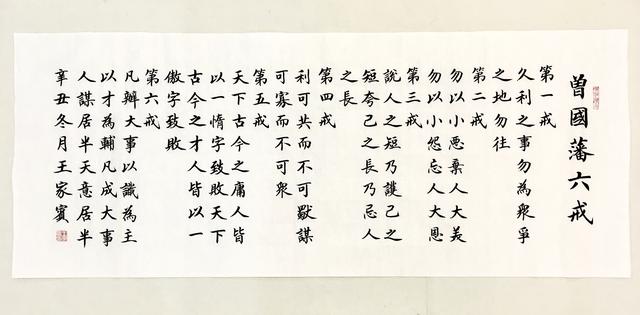 曾國藩六戒
第一戒
久利之事勿為衆爭
之地勿往
第二戒
勿以小惡棄人大美
勿以小怨忘人大恩
第三戒
說人之短乃護己之
短夸己之長乃忌人
之長
第四戒
利可共而不可獸謀
可寡而不可衆
第五戒
天下古今之庸人皆
以一惰字致敗天下
古今之才人皆以一
傲字致敗
第六戒
凡辦大事以識為主
以才為輔凡成大事
人謀居半天意居半
辛丑冬月王家賓